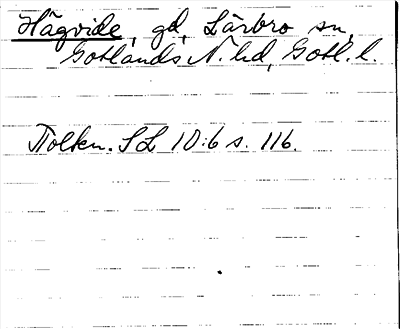 Hägvide, gd, Lärbro sn,
Gotlands N. hd, Gotl. l.
Tolkn. SL 10:6 s. 116.